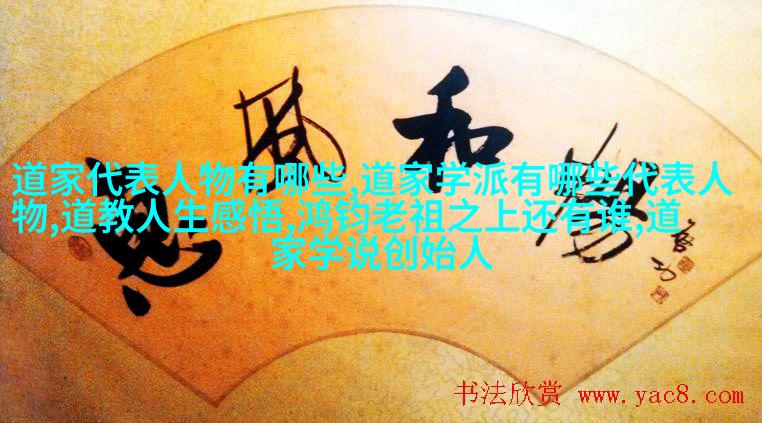 惠風和暢
启功
道家代表人物有哪些,道家学派有哪些代表人
物,道教人生感悟,鸿钧老祖之上还有谁,道
家学说创始人
书法欣赏 www.yac8.com